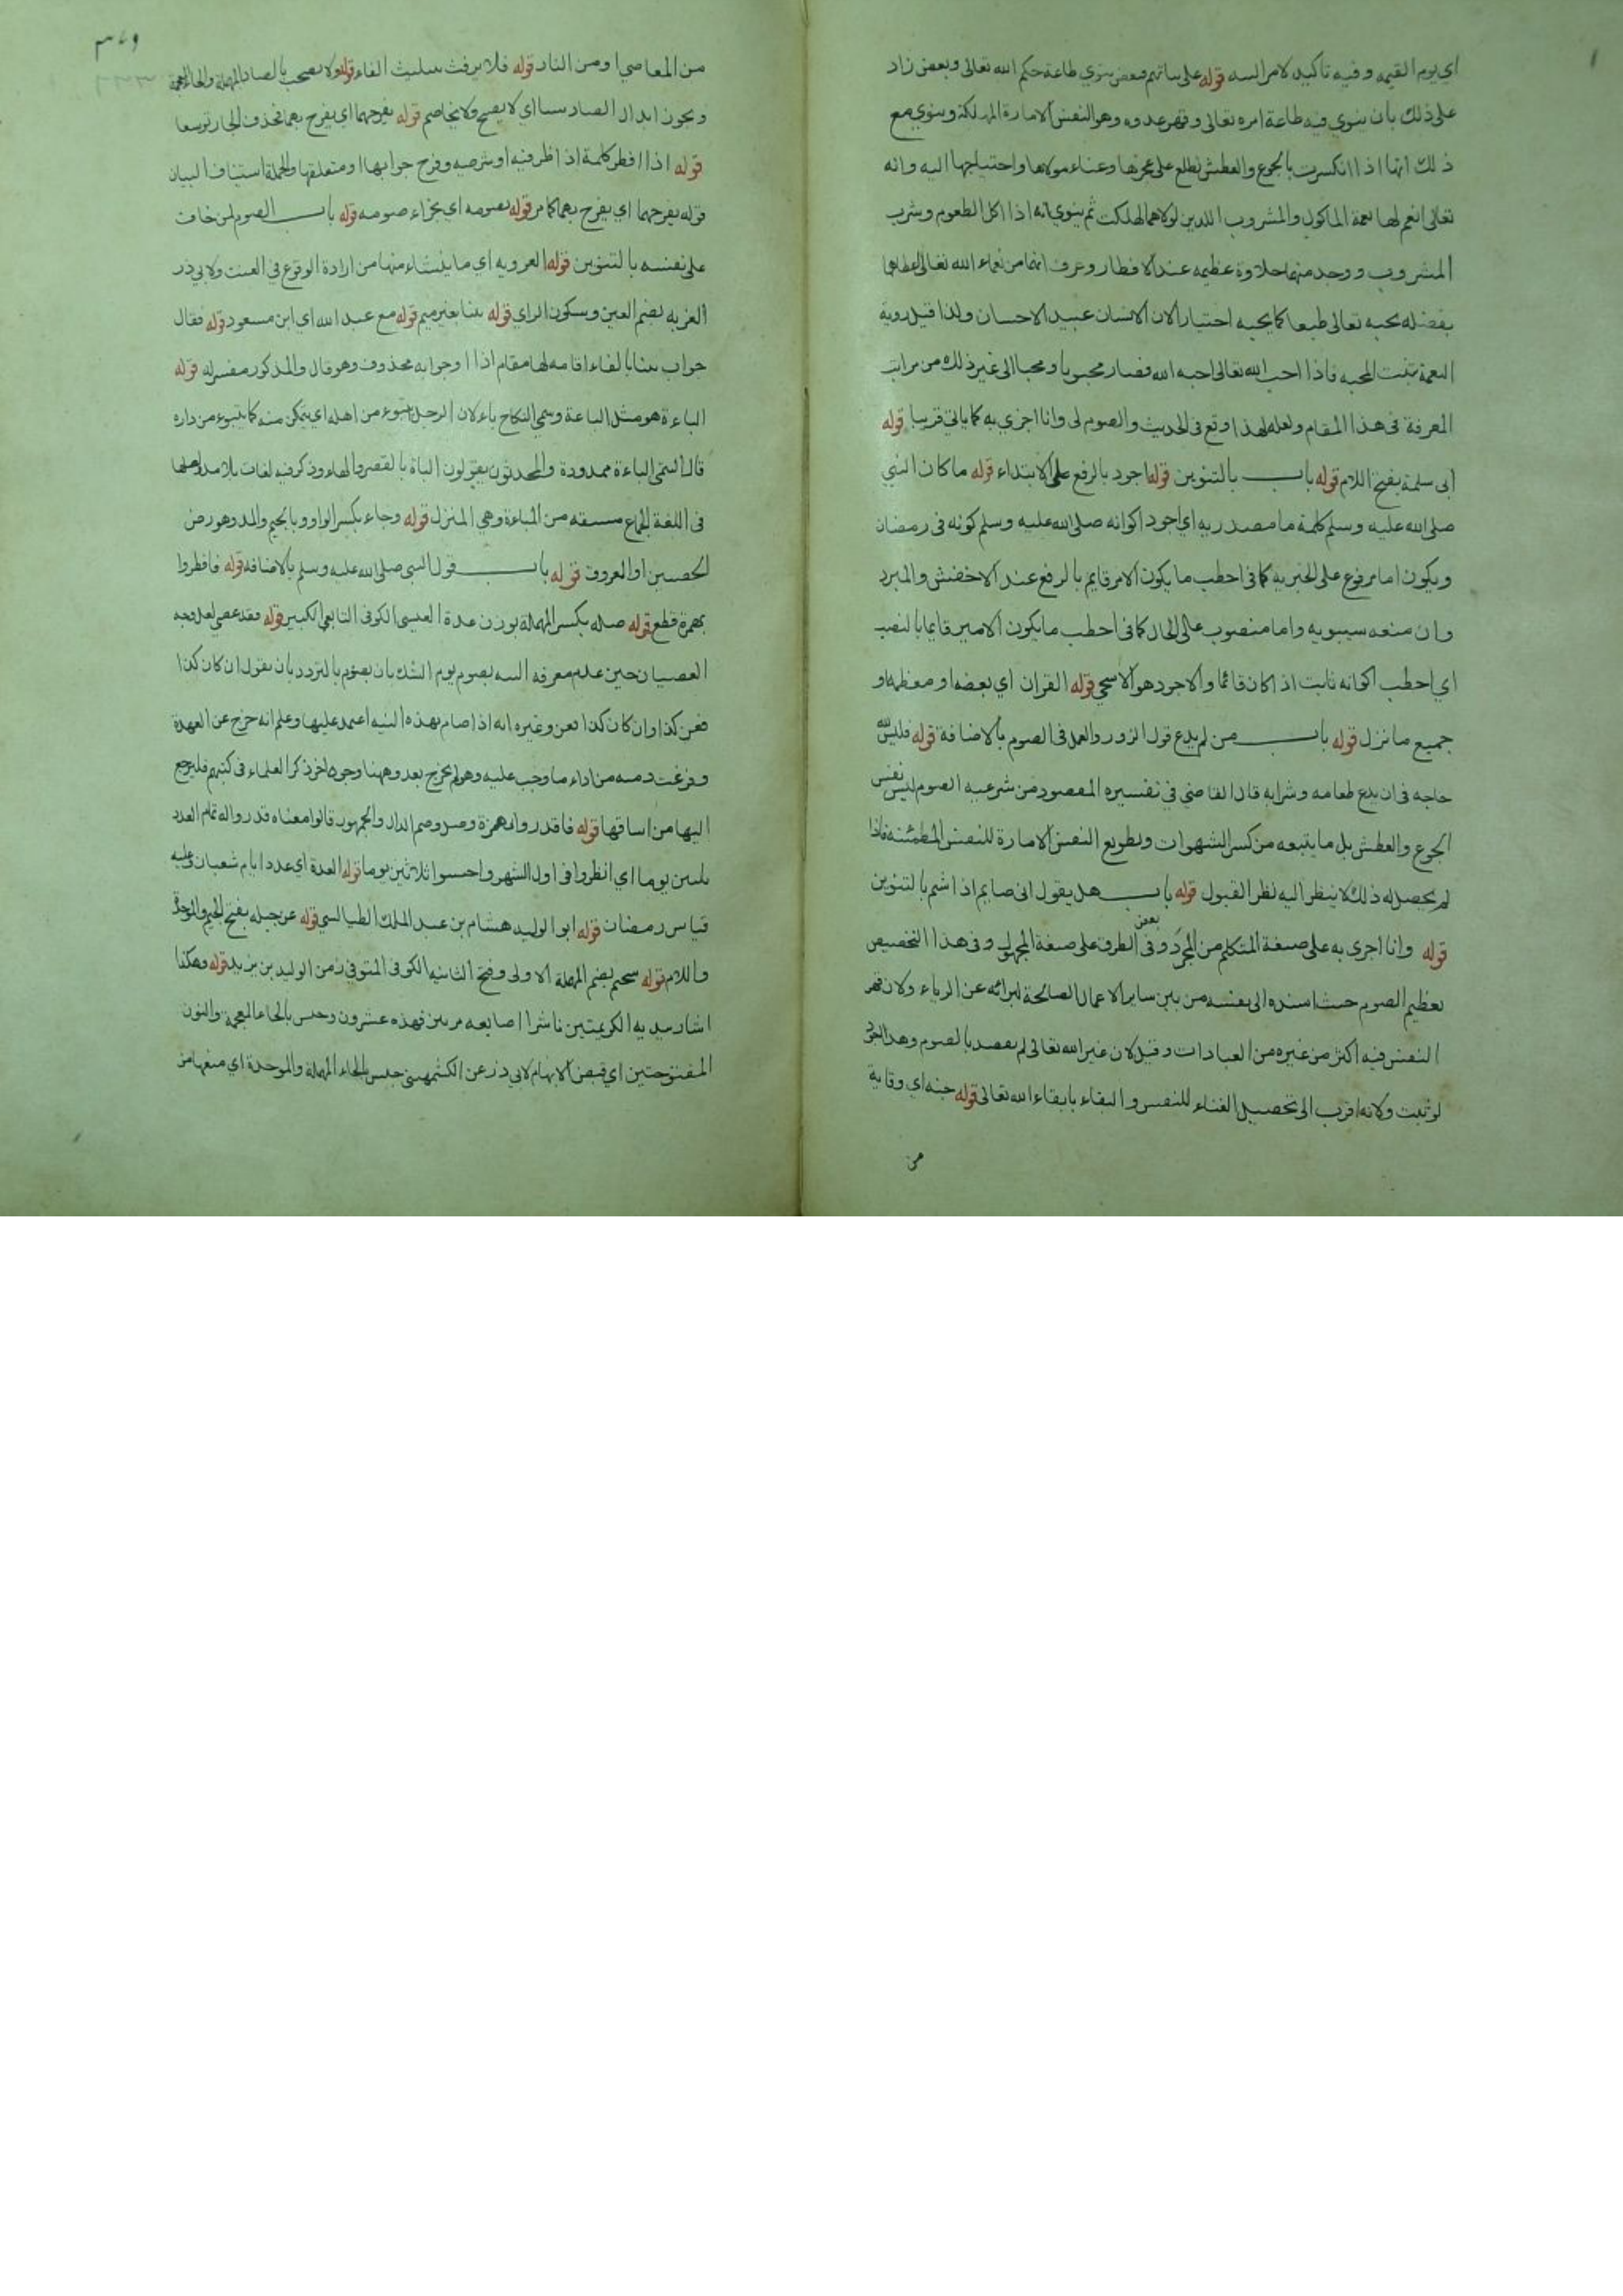 اي يوم القيمه وفيه تاكيد لامر النيه قوله على نياتهم فبعض ينوي طاعة حكم الله تعالى وبعض زاد
على ذلك بان ينوي فيه طاعة امره تعالى وقهر عدوه وهو النفس الامارة المهلكة وينوي مع
ذلك انها اذا انكسرت بالجوع والعطش تطلع على عجزها وغناء مولاها واحتياجها اليه وانه
تعالى انعم لها نعمة الماكول والمشروب اللذين لولاهما لهلكت ثم ينوي انه اذا اكل الطعوم وشرب
المشروب ووجد منهما حلاوة عظيمه عند الافطار وعرف انها من نعماء الله تعالى اعطاها
بفضله يحبه تعالى طبعا كما يحبه اختيارا لان الانسان عبيد الاحسان ولذا قيل روية
النعمة تنبت المحبه فاذا احب الله تعالى احبه الله فصار محبوبا ومحبا الى غير ذلك من مراتب
المعرفة فى هذا المقام ولعله لهذا وقع فى الحديث والصوم لى وانا اجزي به كما ياتى قريبا قوله
ابى سلمة بفتح اللام قوله باب بالتنوين قوله اجود بالرفع على الابتداء قوله ما كان النبي
صلى الله عليه وسلم كلمة ما مصدريه اي اجود اكوانه صلى الله عليه وسلم كونه فى رمضان
ويكون اما مرفوع على الخبريه كما فى اخطب ما يكون الامر قايم بالرفع عند الاخفش والمبرد
وان منعه سيبويه واما منصوب على الحال كما فى اخطب ما يكون الامير قايما بالنصب
اي اخطب اكوانه ثابت اذ كان قائما والاجود هو الاسخى قوله القران اي بعضه او معظمه او
جميع ما نزل قوله باب من لم يدع قول الزور والعمل فى الصوم بالاضافة قوله فليس لله
حاجه فى ان يدع طعامه وشرابه قال القاضي في تفسيره المقصود من شرعيه الصوم ليس نفس
الجوع والعطش بل ما يتبعه من كسر الشهوات وتطويع النفس الامارة للنفس المطمئنه فاذا
لم يحصل له ذلك لا ينظر اليه نظر القبول قوله باب هل يقول انى صايم اذا شتم بالتنوين
قوله وانا اجزى به على صيغة المتكلم من المجرد وفى بعض الطرق على صيغة المجهول وفى هذا التخصيص
تعظيم الصوم حيث اسنده الى نفسه من بين ساير الاعمال الصالحة لبرائه عن الرياء ولان قهر
النفس فيه اكثر من غيره من العبادات وقيل لان غير الله تعالى لم يقصد بالصوم وهذا
لو ثبت ولانه اقرب الى تحصيل الفناء للنفس والبقاء بابقاء الله تعالى قوله جنه اي وقاية
من
٣٧٩
من المعاصي او من النار قوله فلا يرفث بتثليث الفاء قوله ولا يصخب بالصاد المهملة والخاء المعجمة
ويجوز ابدال الصاد سينا اي لا يصيح ولا يخاصم قوله يفرحهما اي يفرح بهما فحذف الجار توسعا
قوله اذا افطر كلمة اذا ظرفيه او شرطيه وفرح جوابها او متعلقها والجملة استيناف البيان
قوله يفرحهما اي يفرح بهما كما مر قوله بصومه اي بجزاء صومه قوله باب الصوم لمن خاف
على نفسه بالتنوين قوله العزوبه اي ما ينشاء منها من ارادة الوقوع في العنت ولابي ذر
العزبه بضم العين وسكون الزاي قوله بينا بغير ميم قوله مع عبد الله اي ابن مسعود قوله فقال
جواب بينا بالفاء اقامه لها مقام اذا او جوابه محذوف وهو قال والمذكور مفسر له قوله
الباءة هو مثل الباعة وسمي النكاح باء لان الرجل يتبوء من اهله اي يتمكن منه كما يتبوء من داره
قال التيمى الباءة ممدودة والمحدثون يقولون الباة بالقصر والهاء وذكر فيه لغات بلا مد
فى اللغة الجماع مشتقه من المباءة وهي المنزل قوله وجاء بكسر الواو وبالجيم والمد وهو رض
الخصيتين او العروق قوله باب قول النبي صلى الله عليه وسلم بالاضافه قوله فافطروا
بهمزة قطع قوله صله بكسر المهملة بوزن عدة العبسى الكوفى التابعي الكبير قوله فقد عصى لعل وجه
العصيان حين عدم معرفه النيه بصوم يوم الشك بان يصوم بالتردد بان يقول ان كان كذا
فعن كذا وان كان كذا فعن وغيره انه اذا صام بهذه النيه اعتمد عليها وعلم انه خرج عن العهدة
وفرغت ذمته من اداء ما وجب عليه وهو لم يخرج بعد وههنا وجوه اخر ذكر العلماء فى كتبهم فليرجع
اليها من اساقها قوله فاقدروا له همزة وصل وضم الدال والجمهور قالوا معناه قدروا له تمام العدد
ثلثين يوما اي انظروا فى اول الشهر واحسبوا ثلاثين يوما قوله العدة اي عدد ايام شعبان وعليه
قياس رمضان قوله ابو الوليد هشام بن عبد الملك الطيالسي قوله عن جبله بفتح الجيم والموحدة
واللام قوله سحيم بضم المهملة الاولى وفتح الثانيه الكوفى المتوفي زمن الوليد بن يزيد قوله وهكذا
اشار بيديه الكريمتين ناشرا اصابعه مرتين فهذه عشرون وخنس بالخاء المعجمة والنون
المفتوحتين اي قبض الابهام لابي ذر عن الكشمهينى حبس بالحاء المهملة والموحدة اي منعها من